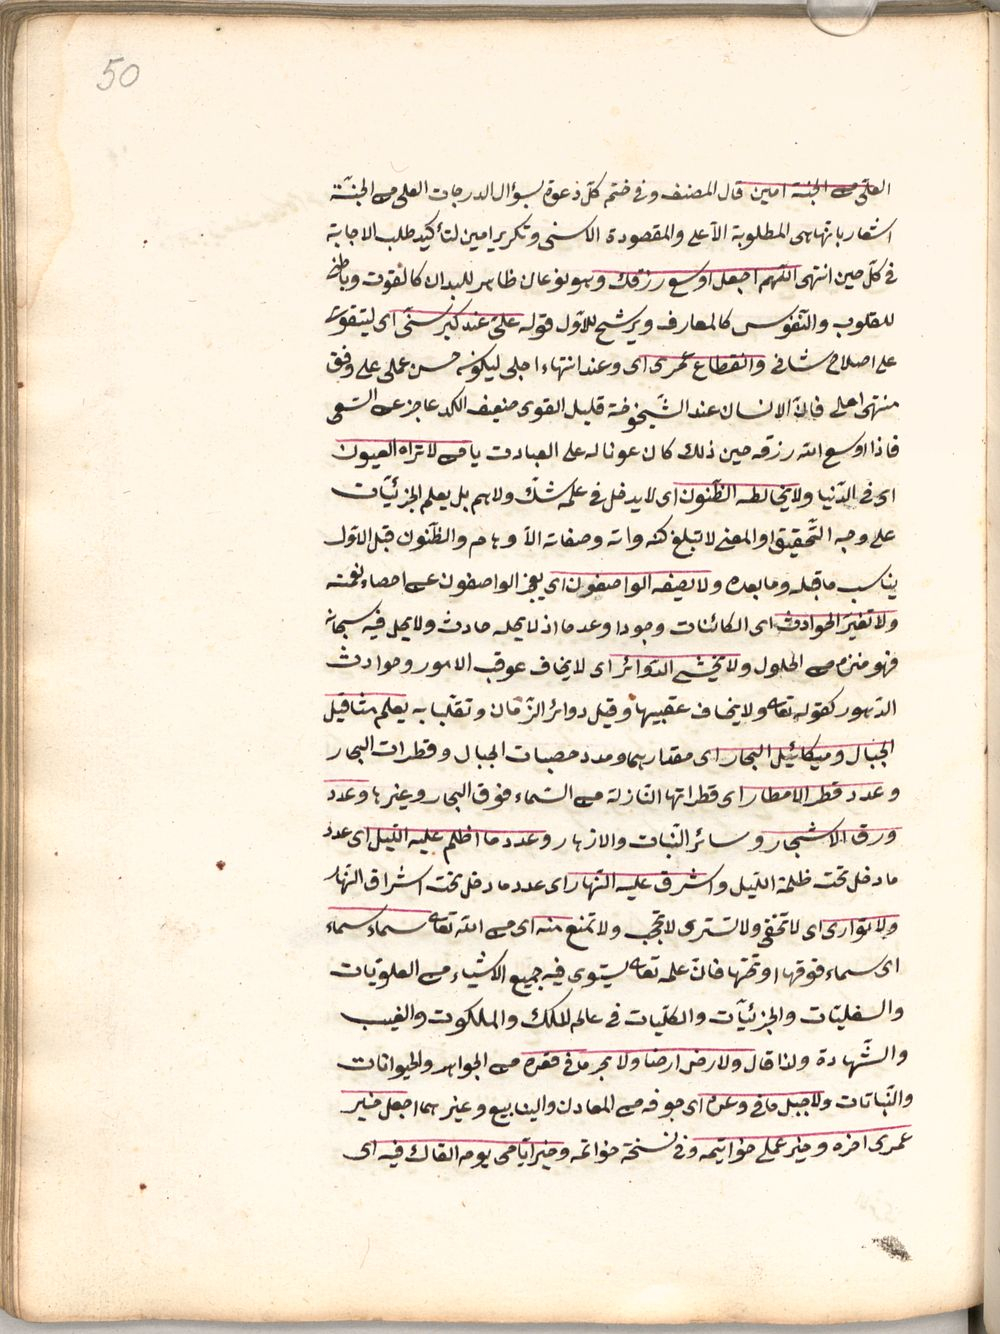 50
العلى من الجنة امين قال المصنف وفى ختم كل دعوة بسؤال الدرجات العلى من الجنة
اشعار بانها هى المطلوبة الاعلى والمقصودة الاسنى وتكرير امين لتأكيد طلب الاجابة
فى كل حين انتهى اللهم اجعل اوسع رزقك وهو نوعان ظاهر للبدان كالقوت وباطن
للقلوب والنفوس كالمعارف ويرشح للاول قوله على عند كبر سنى اى ليتقوت
على اصلاح شانى وانقطاع عمرى اى وعند انتهاء اجلى ليكون حسن عملى على وفق
منتهى املى فان الانسان عند الشيخوخة قليل القوى ضعيف الكد عاجز عن السعى
فاذا اوسع الله رزقه حين ذلك كان عونا له على العبادت يا من لا تراه العيون
اى فى الدنيا ولا يخالطه الظنون اى لا يدخل فى علمه شك ولا هم بل يعلم الجزئيات
على وجه التحقيق او المعنى لا تبلغ كنه واته وصفاته الاوهام والظنون قبل الاول
يناسب ما قبله وما بعده ولا يصفه الواصفون اى يعجز الواصفون عن احصاء نعمته
ولا تغيره الحوادث اى الكائنات وجودا وعدما اذ لا يحله حادث ولا يحل فيه سبحانه
فهو منزه من الحلول ولا يخشى الدوائر اى لا يخاف عوقب الامور وحوادث
الدهور كقوله تعالى ولا يخاف عقبيها وقيل دوائر الزمان وتقلبا به يعلم مثاقيل
الجبال وميكائيل البحار اى مقدارهما ومدد حصبات الجبال وقطرات البحار
وعدد قطر الامطار اى قطراتها النازلة من السماء فوق البحار وغيرها وعدد
ورق الاشجار وسائر النبات والازهار وعدد ما اظلم عليه الليل اى عدد
ما دخل تحت ظلمة الليل واشرق عليه النهار اى عدد ما دخل تحت اشراق النهار
ولا توارى اى لا تخفى ولا تسترى لا تحجب ولا تمنع منه اى من الله تعالى سماء سماء
اى سماء فوقها او تحتها فان علمه تعالى يستوى فيه جميع الاشياء من العلويات
والسفليات والجزئيات والكليات فى عالم الملك والملكوت والغيب
والشهادة ولذا قال ولا ارض ارضا ولا بحر ما فى قعره من الجواهر والحيوانات
والنباتات ولا جبل ما فى وعره اى جوفه من المعادن والينابيع وغيرهما اجعل خير
عمرى اخره وخير عملى خواتيمه وفى نسخة خواتمه وخير ايامى يوم القاك فيه اى